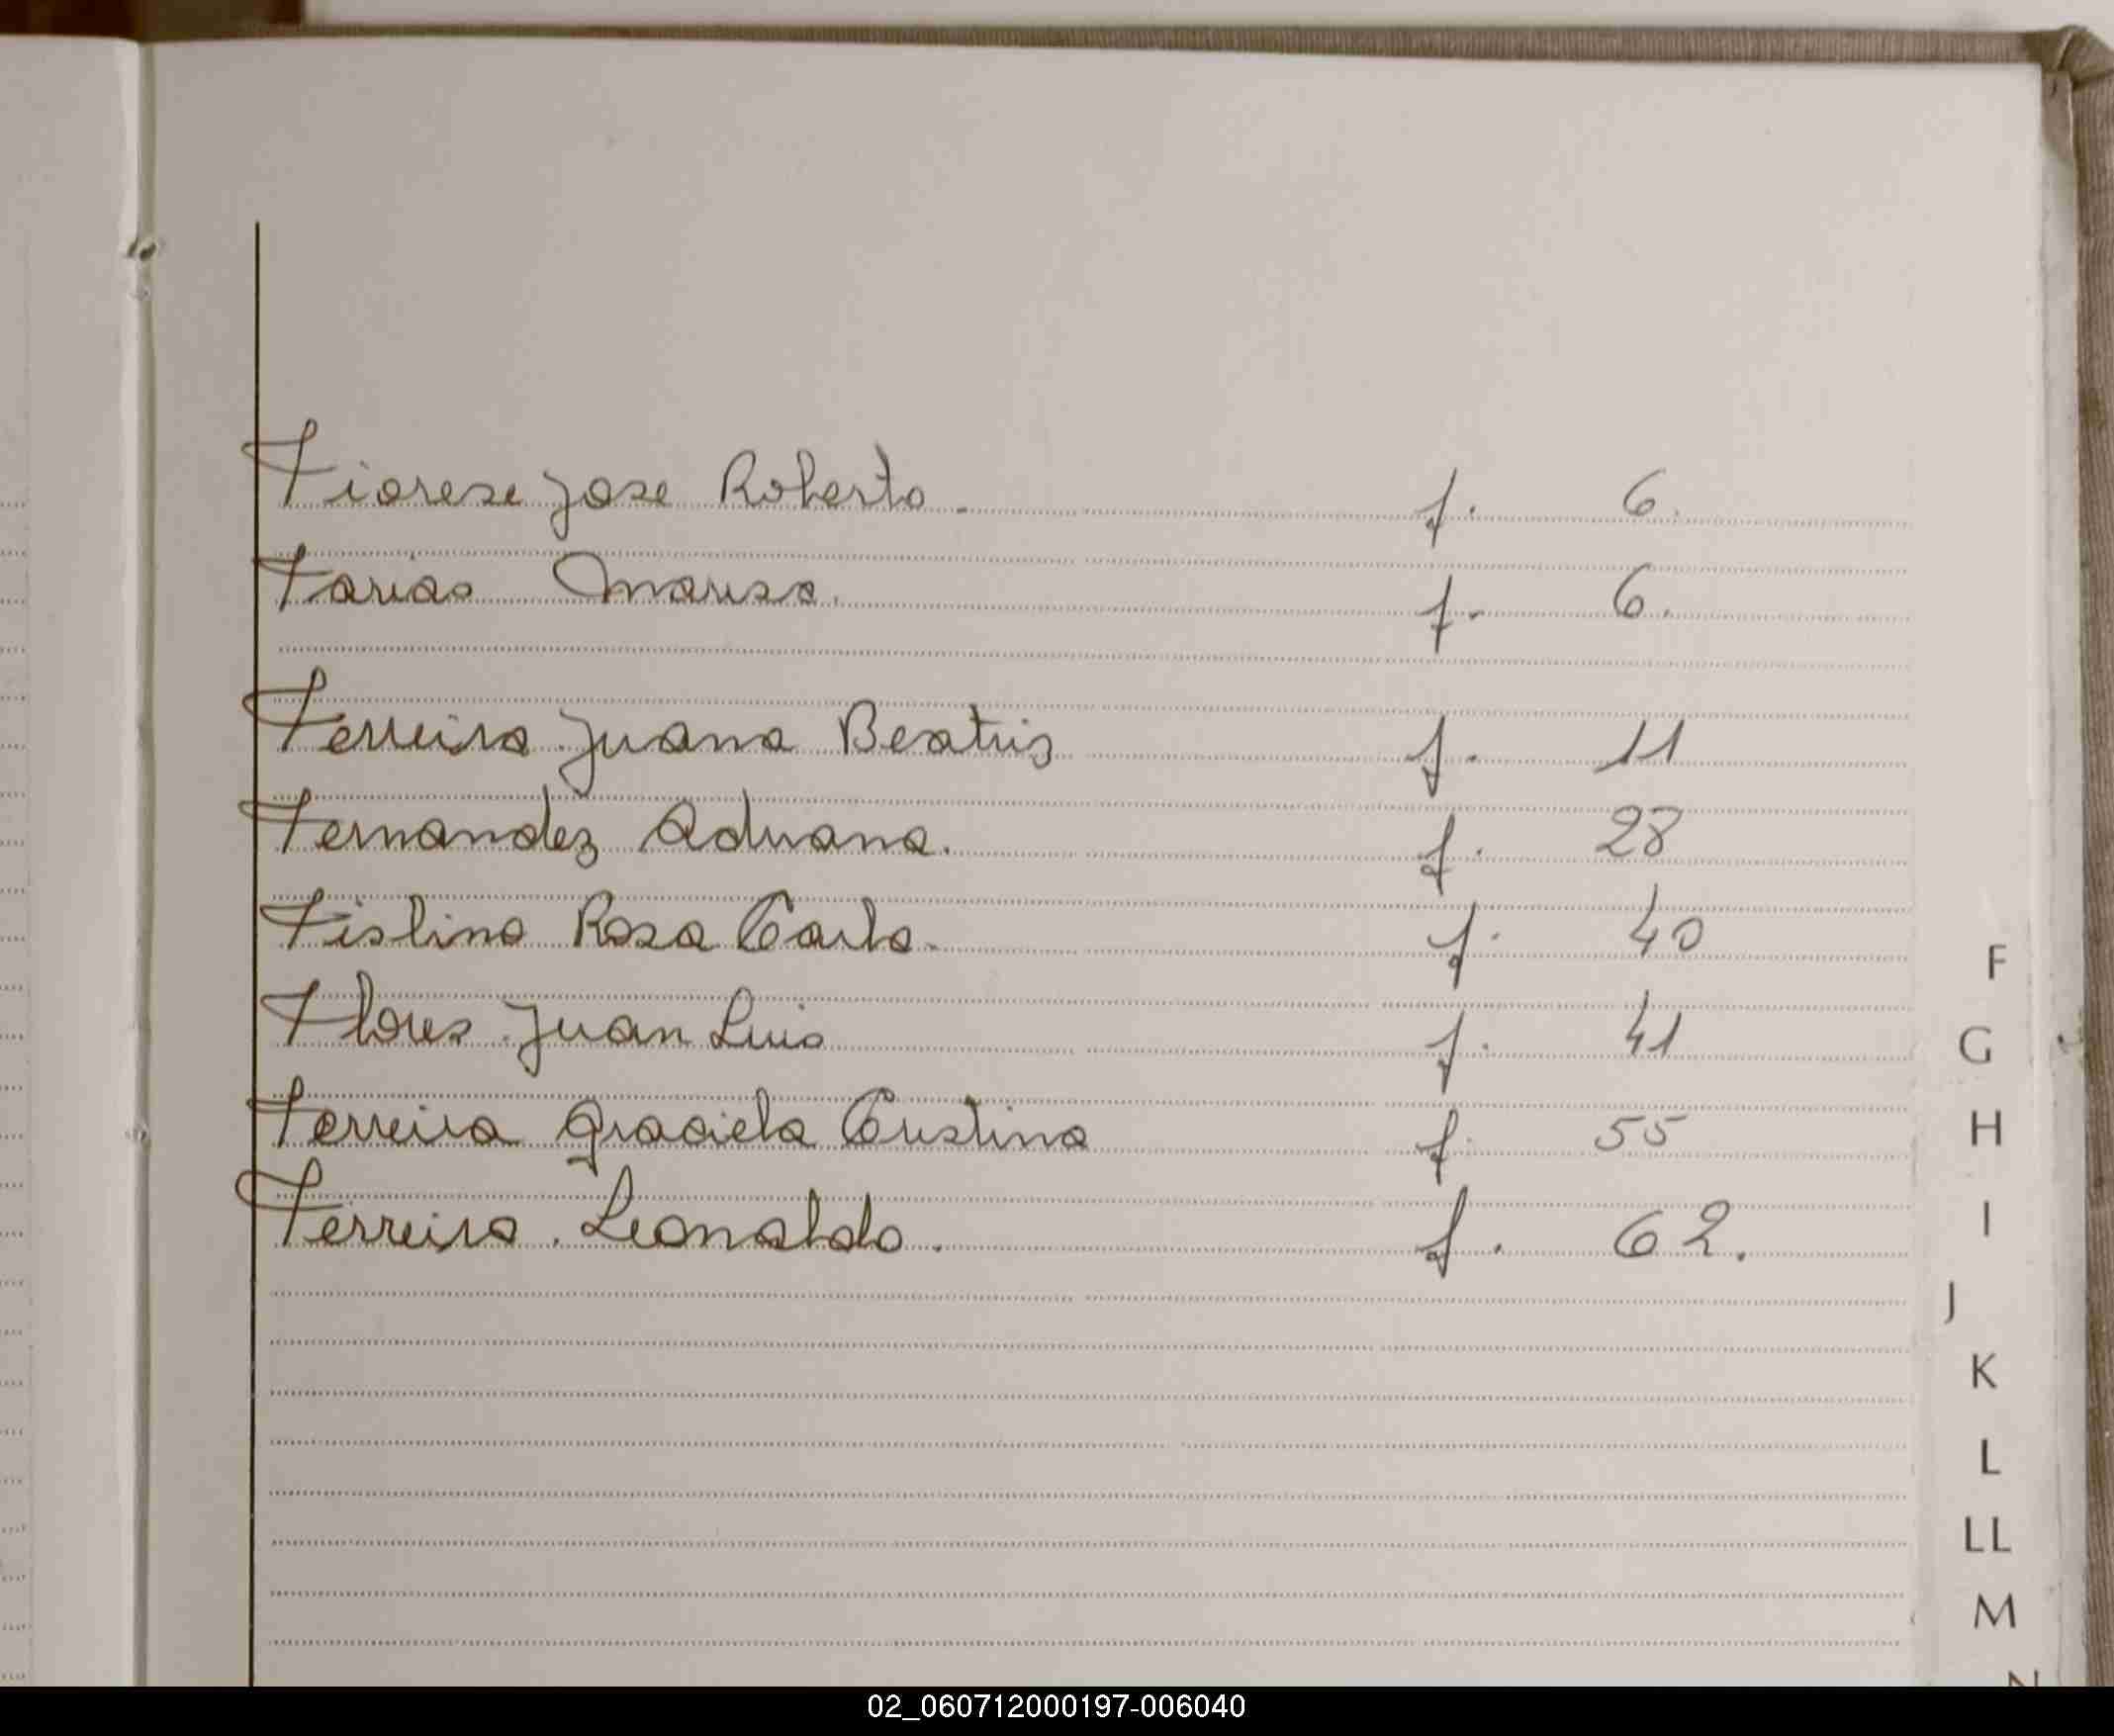 Fiorese Jose Roberto. f. 6.
Farias Marisa. f. 6.
Ferreira Juana Beatriz f. 11
Fernandez Adriana. f. 28
Fislina Rosa Carla. f. 40
Flores Juan Luis f. 41
Ferreira Graciela Cristina f. 55
Ferreira. Leonaldo. f. 62.
F
G
H
I
J
K
L
LL
M
N
02_060712000197-006040